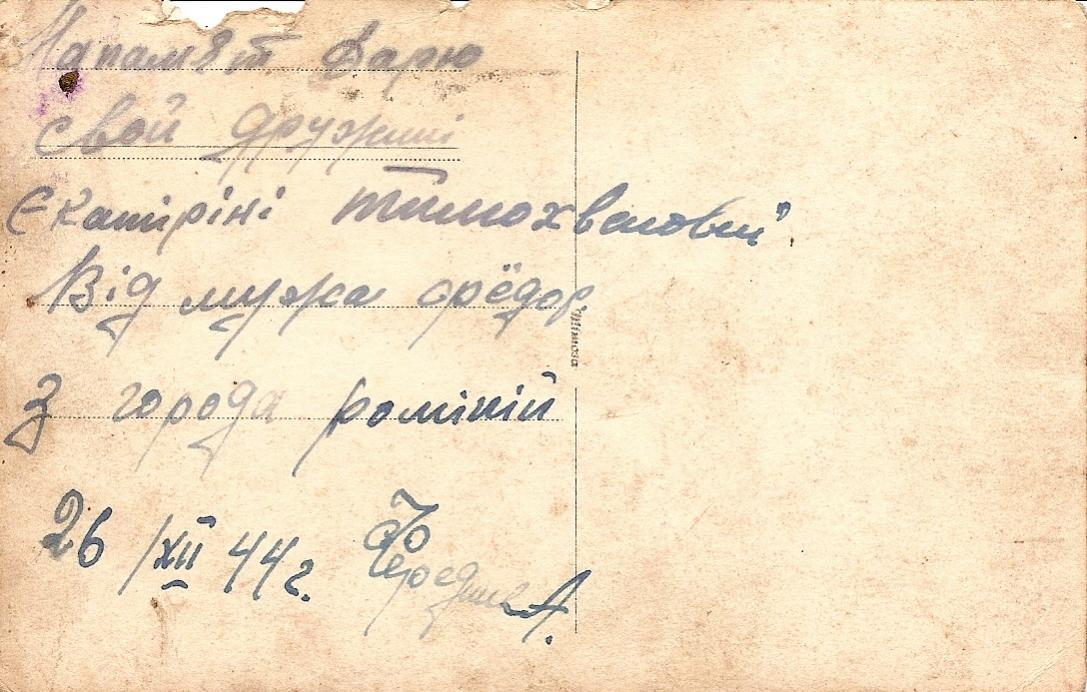 Напамят Дарю
свой дружині
Екатиріні тимохвеювни
Від мужа фёдор.
З города роміній
26 /XII 44 г.